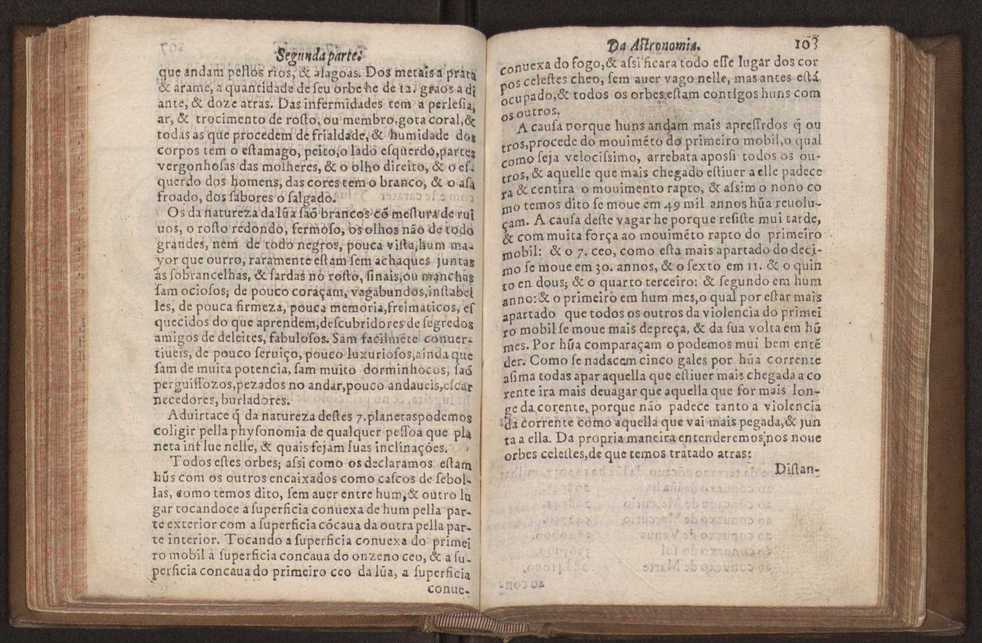 Segunda parte.
que andam pellos rios, & alagoas. Dos metais a prata
& arame, a quantidade de seu orbe he de 12. graos a di
ante, & doze atras. Das infermidades tem a perlesia,
ar, & trocimento de rosto, ou membro, gota coral, &
todas as que procedem de frialdade, & humidade dos
corpos tem o estamago, peito, o lado esquerdo, partes
vergonhosas das molheres, & o olho direito, & o es-
querdo dos homens, das cores tem o branco, & o asa
froado, dos sabores o salgado.
Os da natureza da lũa saõ brancos cõ mestura de rui
uos, o rosto redondo, fermoso, os olhos não de todo
grandes, nem de todo negros, pouca vista, hum ma-
yor que ourro, raramente estam sem achaques juntas
as sobrancelhas, & sardas no rosto, sinais, ou manchas
sam ociosos; de pouco coraçam, vagabundos, instabel
les, de pouca firmeza, pouca memoria, freimaticos, es
quecidos do que aprendem, descubridores de segredos
amigos de deleites, fabulosos. Sam facilmẽte conuer-
tiueis, de pouco seruiço, pouco luxuriosos, ainda que
sam de muita potencia, sam muito dorminhocos, saõ
perguissozos, pezados no andar, pouco andaueis, escar
necedores, burladores.
Aduirtace q̃ da natureza destes 7. planetas podemos
coligir pella physonomia de qualquer pessoa que pla
neta influe nelle, & quais sejam suas inclinações.
Todos estes orbes; assi como os declaramos estam
hũs com os outros encaixados como cascos de sebol-
las, como temos dito, sem auer entre hum, & outro lu
gar tocandoce a superficia conuexa de hum pella par-
te exterior com a superficia cõcaua da outra pella par-
te interior. Tocando a superficia conuexa do primei
ro mobil à superficia concaua do onzeno ceo, & a su-
perficia concaua do primeiro ceo da lũa, a superficia
conue-
Da Astronomia. 103
conuexa do fogo, & assi ficara todo esse lugar dos cor
pos celestes cheo, sem auer vago nelle, mas antes está
ocupado, & todos os orbes estam contigos huns com
os outros.
A causa porque huns andam mais apressrdos q̃ ou
tros, procede do mouimẽto do primeiro mobil, o qual
como seja velocissimo, arrebata apos si todos os ou-
tros, & aquelle que mais chegado estiuer a elle padece
ra & centira o mouimento rapto, & assim o nono co
mo temos dito se moue em 49 mil annos hũa reuolu-
çam. A causa deste vagar he porque resiste mui tarde,
& com muita força ao mouimẽto rapto do primeiro
mobil: & o 7. ceo, como esta mais apartado do deci-
mo se moue em 30. annos, & o sexto em 11. & o quin
to en dous; & o quarto terceiro: & segundo em hum
anno: & o primeiro em hum mes, o qual por estar mais
apartado que todos os outros da violencia do primei
ro mobil se moue mais depreça, & da sua volta em hũ
mes. Por hũa comparaçam o podemos mui bem entẽ
der. Como se nadacem cinco gales por hũa corrente
asima todas apar aquella que estiuer mais chegada a co
rente ira mais deuagar que aquella que for mais lon-
ge da corente, porque não padece tanto a violencia
da corrente como aquella que vai mais pegada, & jun
ta a ella. Da propria maneira entenderemos; nos noue
orbes celestes, de que temos tratado atras:
Distan-